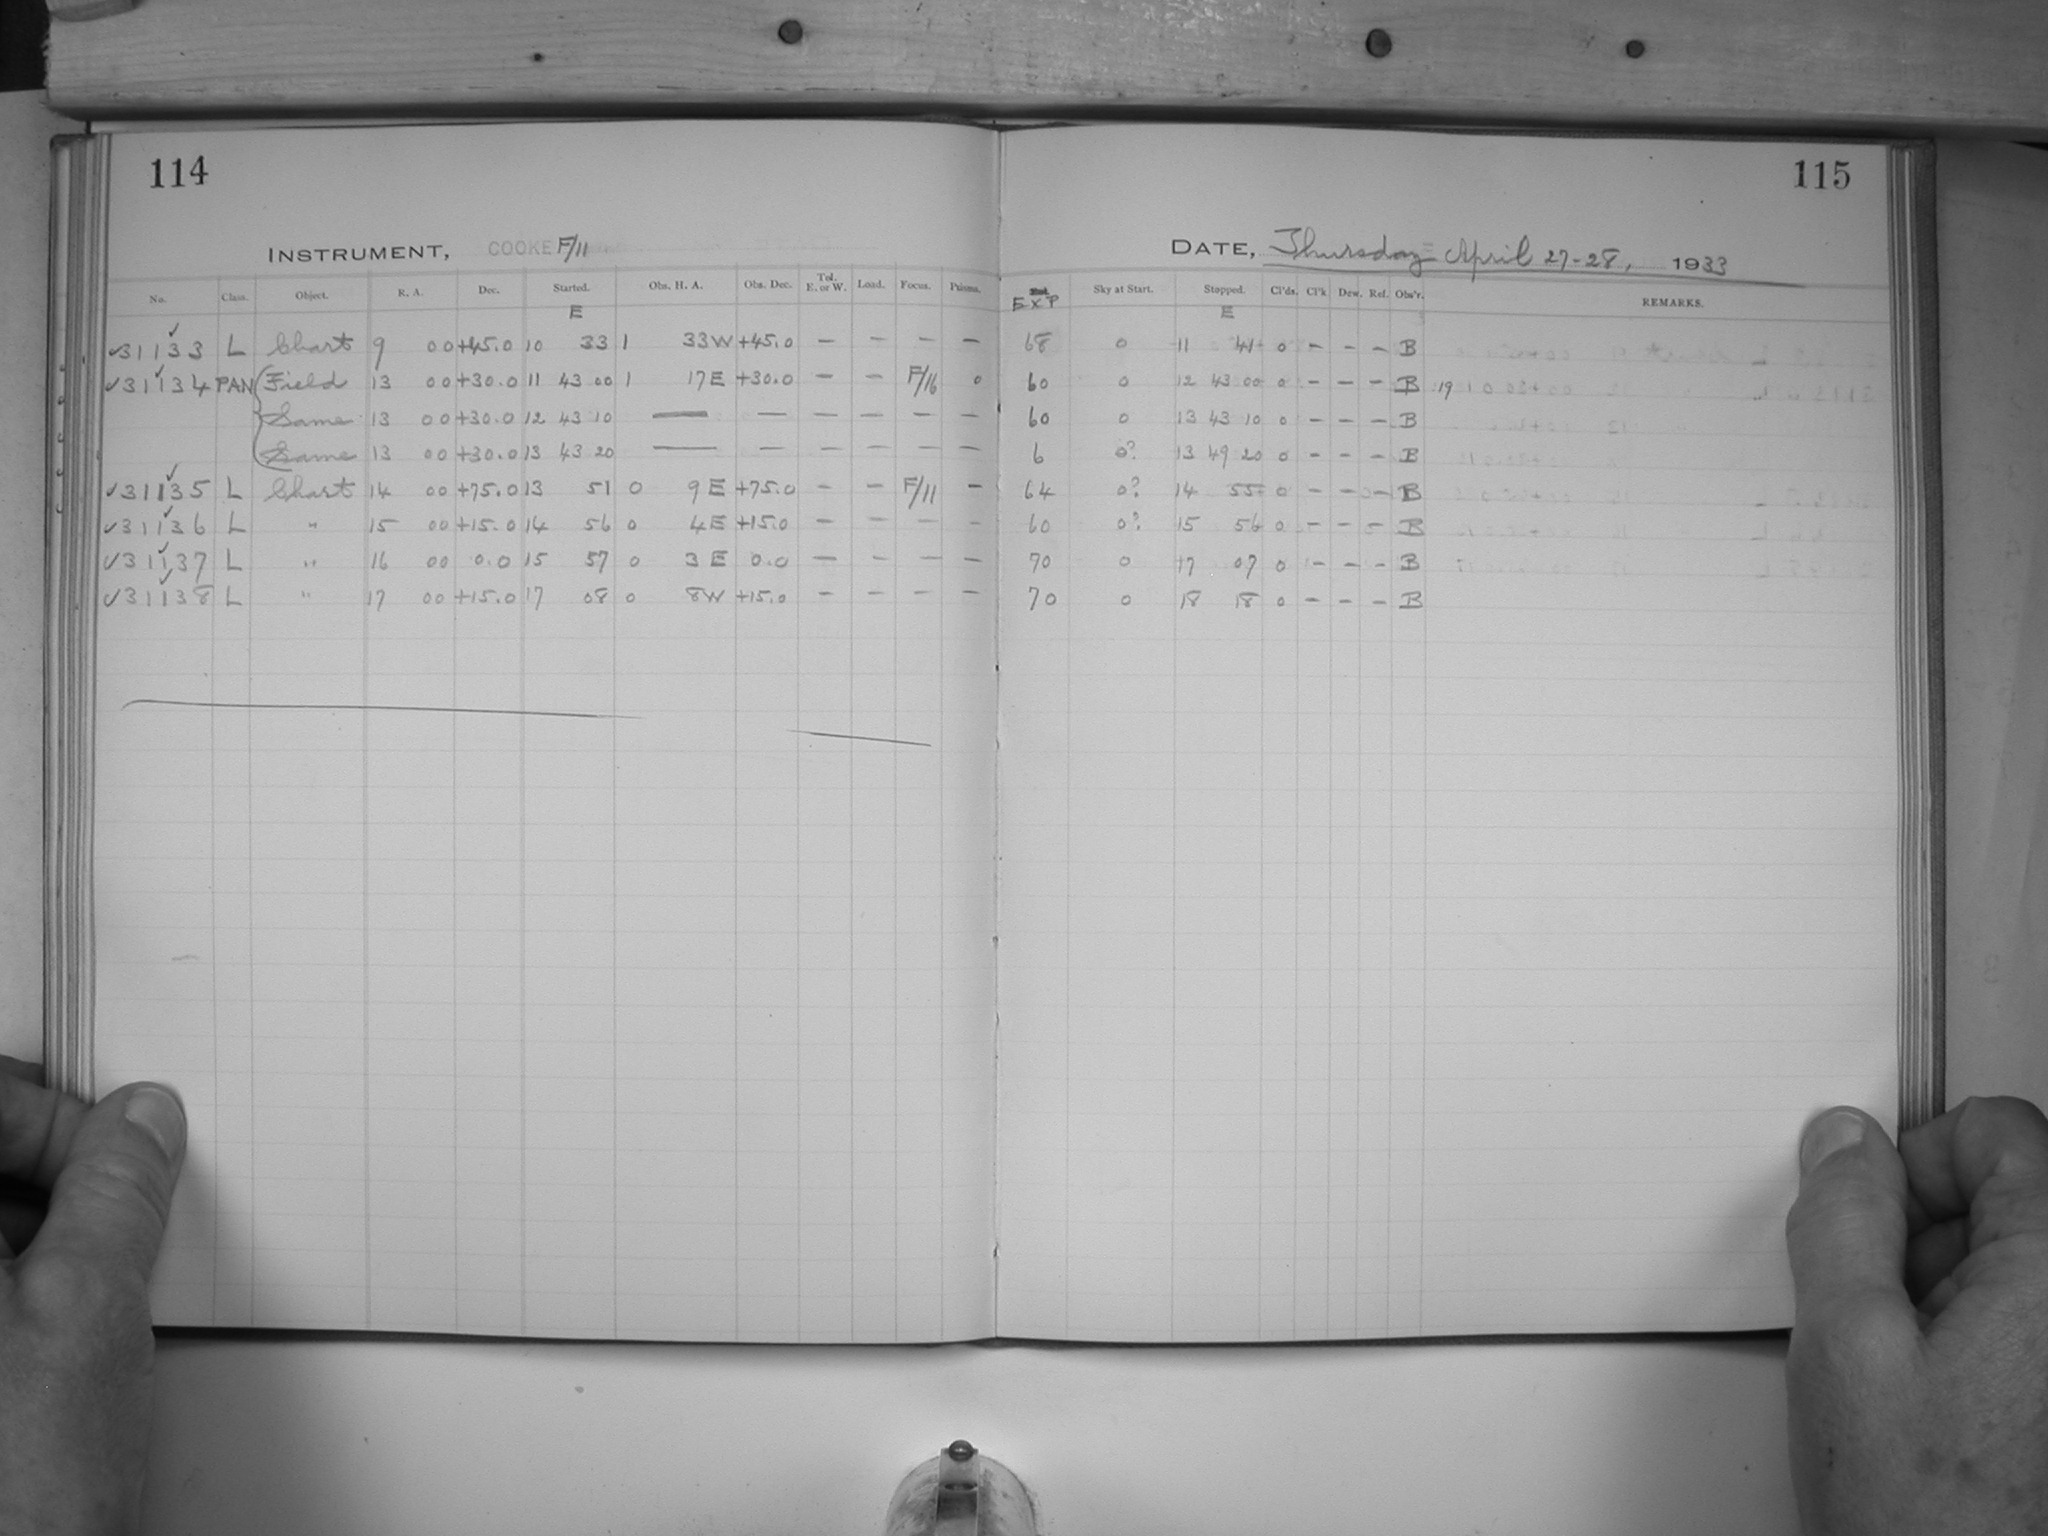 114
115
INSTRUMENT, COOKE F/11
DATE, Thursday April 27-28, 1933
No. Class. Object. R. A. Dec. Started. Obs. H. A. Obs. Dec. Tel. E. or W. Load. Focus. Prisms. EXP Sky at Start. Stopped. Cl'ds. Cl'k Dew. Ref. Obs'r. REMARKS.
E E
✓31133 L Chart 9 00 +45.0 10 33 1 33W +45.0 — — — — 68 0 11 41 0 – – – B
✓31134 PAN Field 13 00 +30.0 11 43 00 1 17E +30.0 — — F/16 0 60 0 12 43 00 0 – – – B 19
Same 13 00 +30.0 12 43 10 — — — — — — 60 0 13 43 10 0 – – – B
Same 13 00 +30.0 13 43 20 — — — — — — 6 0? 13 49 20 0 – – – B
✓31135 L Chart 14 00 +75.0 13 51 0 9E +75.0 — — F/11 — 64 0? 14 55 0 – – – B
✓31136 L " 15 00 +15.0 14 56 0 4E +15.0 — — — — 60 0? 15 56 0 – – – B
✓31137 L " 16 00 0.0 15 57 0 3E 0.0 — — — — 70 0 17 07 0 – – – B
✓31138 L " 17 00 +15.0 17 08 0 8W +15.0 — — — — 70 0 18 18 0 – – – B